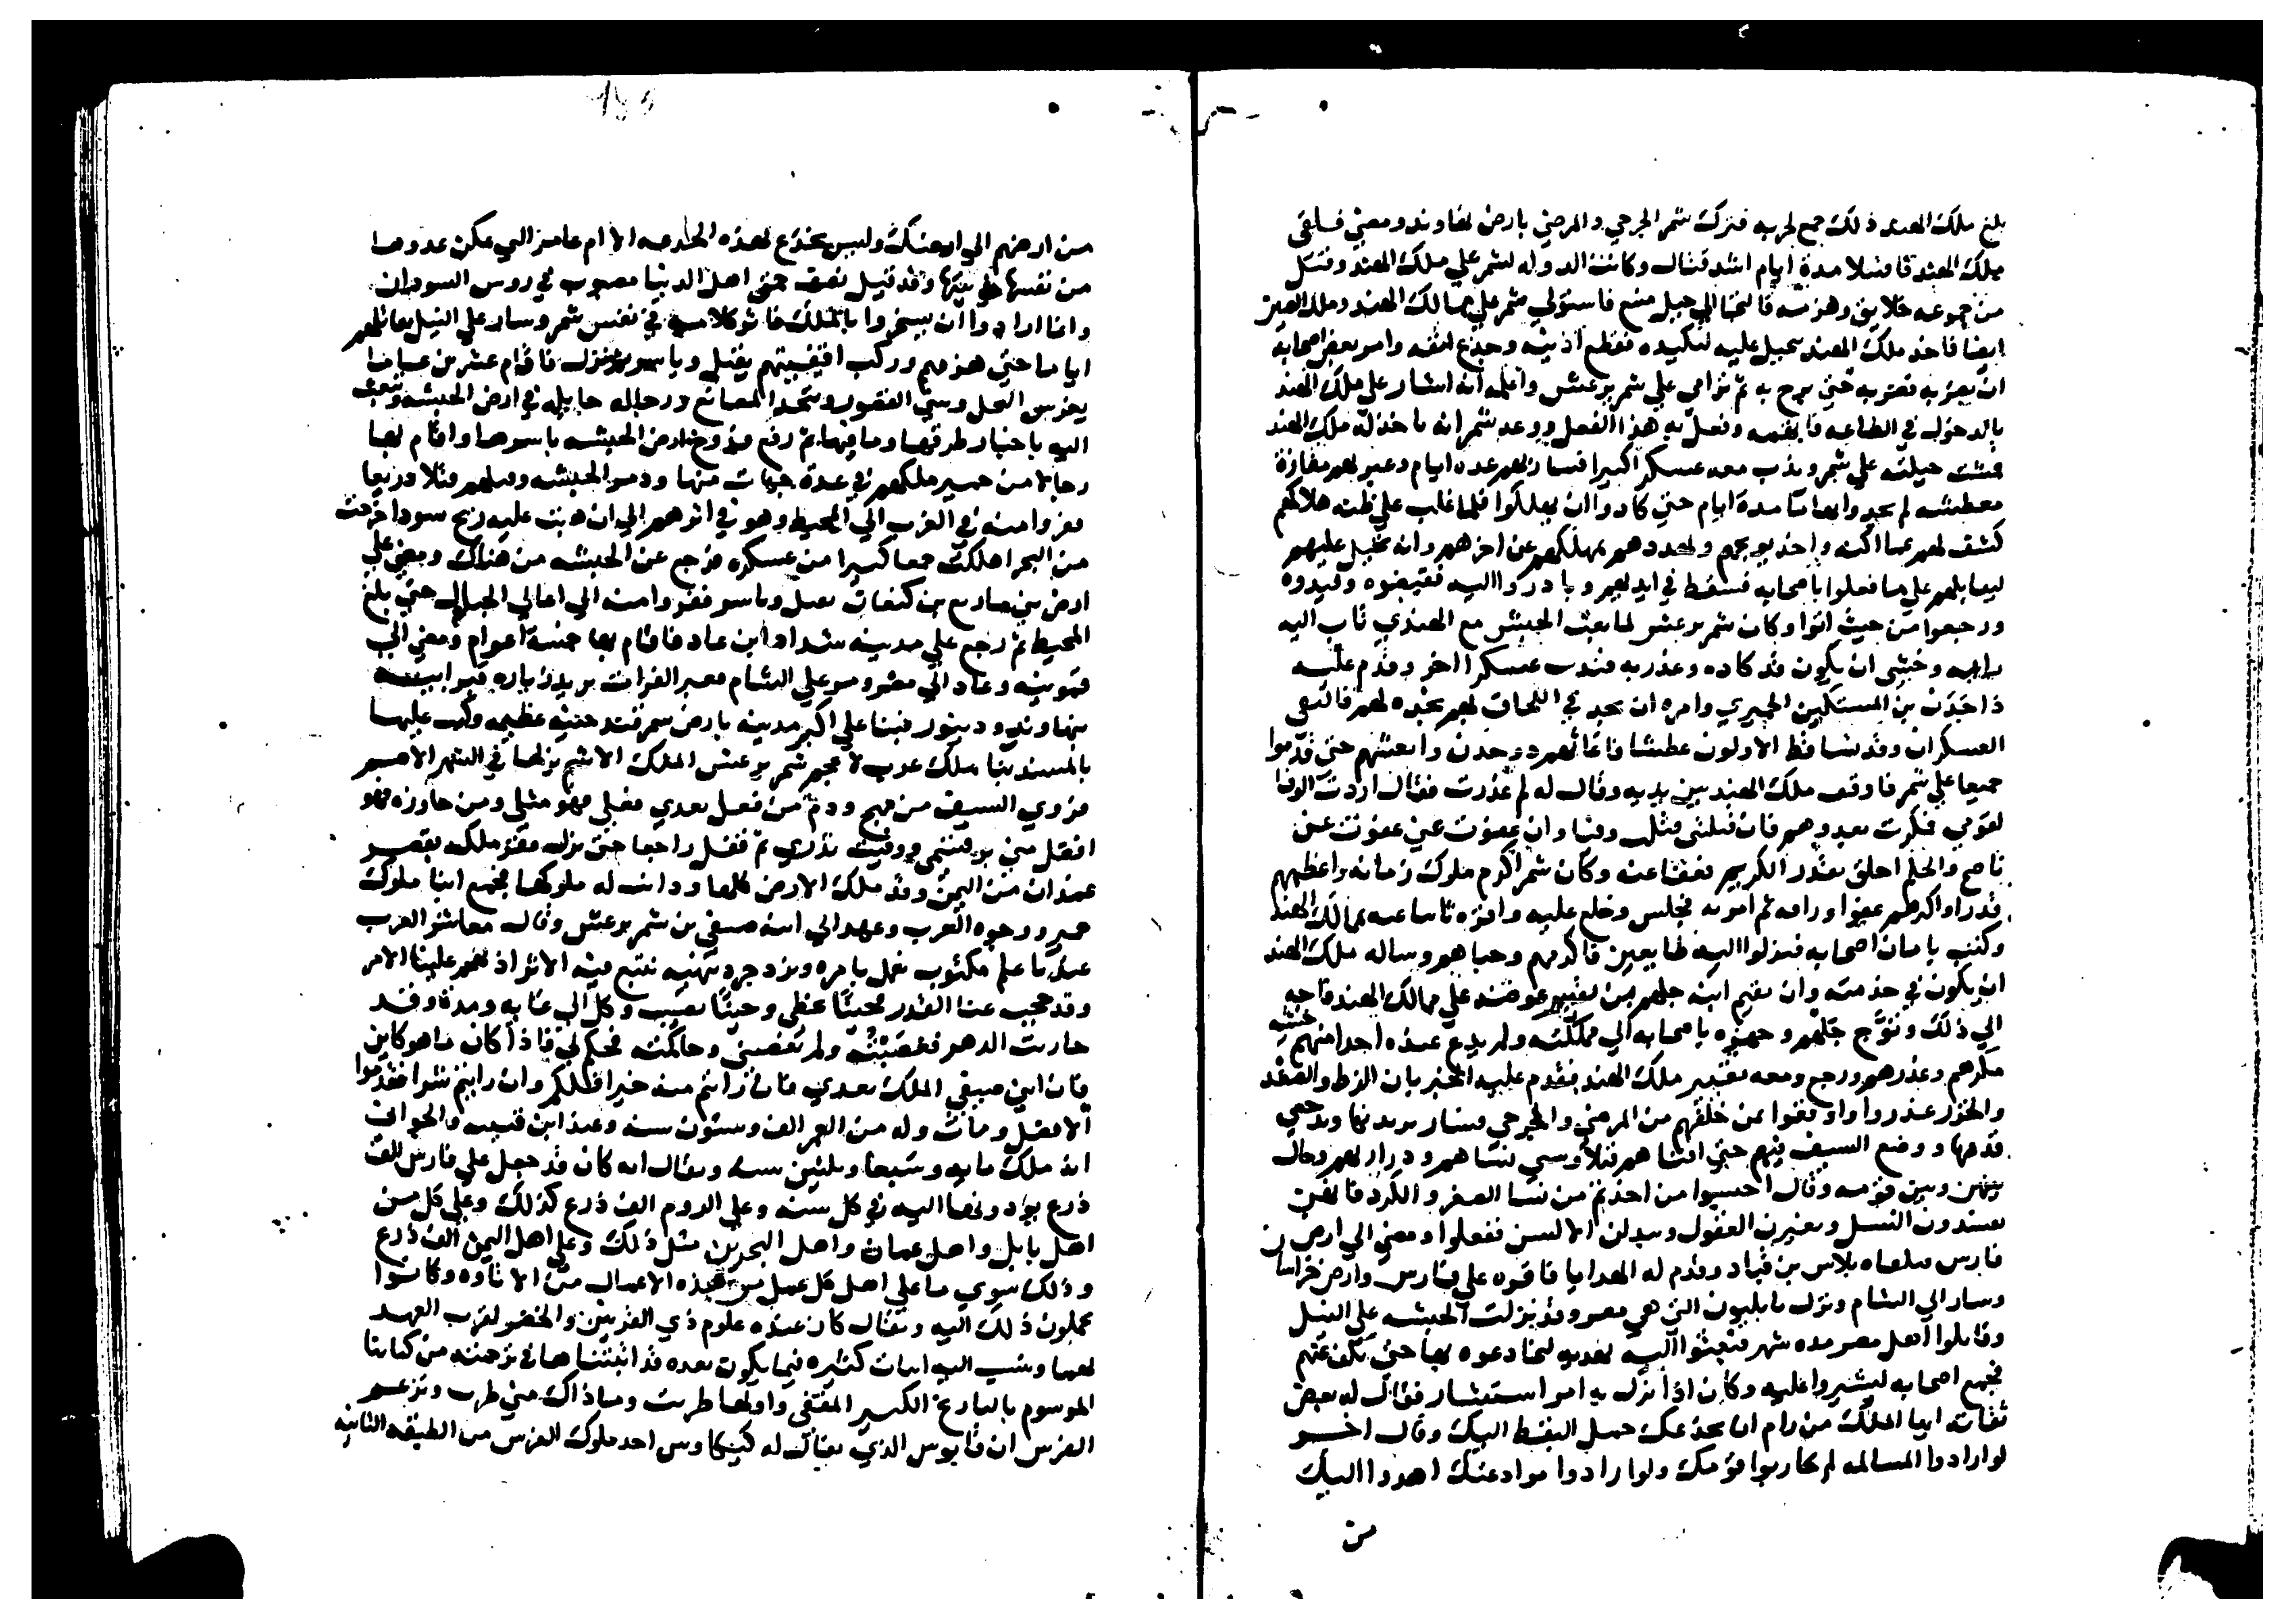 بلغ ملك الهند ذلك جمع لحربه فترك شمر الجرحي والمرضي بارض نهاوند ومضي فلقي
ملك الهند فاقتتلا مدة ايام اشد قتال وكانت الدوله لشمر علي ملك الهند وقتل
من جموعه خلايق وهزمه فالتجا الي جبل منيع فاستولي شمر علي ممالك الهند وملك الصين
ايضا فاخذ ملك الهند يتحيل عليه لمكيده فقطع اذنيه وجدع انفه وامر بعض اصحابه
ان يضربه فضربه حتي برح به ثم ترامي علي شمر يرعش واعلمه انه اشار علي ملك الهند
بالدخول في الطاعه فابغضه وفعل به هذا الفعل ووعد شمر انه ياخذ له ملك الهند
فتمت حيلته علي شمر وندب معه عسكرا كبيرا فسار بهم عدة ايام وعبر بهم مفازة
معطشه لم يجدوا بها ما مدة ايام حتي كادوا ان يهلكوا فلما غلب علي ظنه هلاكهم
كشف لهم عما اكنه واخذ يوبخهم ويهددهم بهلاكهم عن اخرهم وانه تحيل عليهم
ليقابلهم علي ما فعلوا باصحابه فسقط في ايديهم وبادروا اليه فقبضوه وقيدوه
ورجعوا من حيث اتوا وكان شمر يرعش لما بعث الجيش مع الهندي ثاب اليه
رايه وخشي ان يكون قد كاده وغدر به فندب عسكرا اخر وقدم عليه
ذا جدن بن المستكين الحميري وامره ان يجد في اللحاق بهم نجده لهم فالتقي
العسكران وقد تساقط الاولون عطشا فاغاثهم ذو جدن وانعشهم حتي قدموا
جميعا علي شمر فاوقف ملك الهند بين يديه وقال له لم غدرت فقال اردت الوفا
لقومي فنكرت بعدوهم فان قتلتني فمثل وفيا وان عفوت عني عفوت عن
ناصح والحلم اخلق بقدر الكريم فعفا عنه وكان شمر اكرم ملوك زمانه واعظمهم
قدرا واكثرهم عفوا ورافه ثم امر به فجلس وخلع عليه واقره نايبا عنه بممالك الهند
وكتب بامان اصحابه فنزلوا اليه طايعين فاكرمهم وحباهم وساله ملك الهند
ان يكون في خدمته وان يقيم ابنه جلهم بن نفير عوضه علي ممالك الهند فاجابه
الي ذلك وتوج جلهم وجهزه باصحابه الي مملكته ولم يدع عنده احدا منهم خشيه
مكرهم وغدرهم ورجع ومعه نفير ملك الهند فقدم عليه الخبر بان الزط والصغد
والخزر غدروا واوقعوا بمن خلفهم من المرضي والجرحي فسار يريدنها وندحي
قدمها ووضع السيف فيهم حتي افناهم قتلا وسبي نساهم وذراريهم وحال
بينهن وبين قومه وقال احبسوا من اخذتم من نسا الصغد والكرد فانهن
يفسدون النسل ويغيرن العقول ويبدلن الالسن ففعلوا ومضي الي ارض
فارس فلقاه بلاس بن قباد وقدم له الهدايا فاقره علي فارس وارض خراسان
وسار الي الشام ونزل بابليون التي هي مصر وقد نزلت الحبشه علي النيل
وقاتلوا اهل مصر مده شهر فبعثوا اليه بهديه ليخادعوه بها حتي يكف عنهم
فجمع اصحابه ليشيروا عليه وكان اذا نزل به امر استشار فقال له بعض
ثقاته ايها الملك من رام ان يخدعك حمل النفط اليك وقال اخر
لو ارادوا المسالمه لم يحاربوا قومك ولو ارادوا موادعتك اهدوا اليك
من
من ارضهم الي ارضك وليس يخدع لهذه الخدعه الا ام عامر التي يمكن عدوها
من نفسها وقد قيل نصف حمق اهل الدنيا مصبوب في روس السودان
وانما ارادوا ان يسخروا بالملك فاثر كلامه في نفس شمر وسار علي النيل يقاتلهم
اياما حتي هزمهم وركب اقفيتهم يقتل وياسر ونزل فاقام عشرين عاما
يغرس النخل ويبني القصور ويتخذ المصانع ورجاله جايله في ارض الحبشه وتبعث
اليه باخبار طرقها وما فيها ثم رفع ودوخ ارض الحبشه باسرها واقام بها
رجالا من حمير ملكهم في عدة جهات منها ودمر الحبشه وملاهم قتلا وربعا
ففروا منه في الغرب الي المحيط وهو في اثرهم الي ان هبت عليه ريح سودا خرجت
من البحر اهلكت جمعا كبيرا من عسكره فرجع عن الحبشه من هناك ومضي علي
ارض بني ماريع بن كنعان يقتل وياسر ففروا منه الي اعالي الجبال حتي بلغ
المحيط ثم رجع علي مدينه شداد ابن عاد فاقام بها خمسة اعوام ومضي الي
قمونيه وعاد الي مصر ومر علي الشام فعبر الفرات يريد زياره قبر ابيه
بنهاوند ودينور فبنا علي اكبر مدينه بارض سمرقند حنيه عظيمه وكتب عليها
بالمسند بنا ملك عرب لا عجم شمر يرعش الملك الاشم نزلها في الشهر الاصم
فروي السيف من مهج ودم من فعل بعدي فعلي فهو مثلي ومن جاوزه فهو
افضل مني بر قسمي ووفيت نذري ثم قفل راجعا حتي نزل مقر ملكه بقصر
غمدان من اليمن وقد ملك الارض كلها ودانت له ملوكها فجمع ابنا ملوك
حمير ووجوه العرب وعهد الي ابنه صيفي بن شمر يرعش وقال معاشر العرب
عندنا علم مكتوب نعمل بامره ونزدجر بنهيه نتبع فيه الاثر اذ عم علينا الامر
وقد حجب عنا القدر فحينا يخطي وحينا يصيب وكل الي غايه ومدة وقد
حاربت الدهر فغصبته ولم يغصبني وحاكمته فحكم لي فاذا كان ما هو كاين
فان ابني صيفي الملك بعدي فان رايتم منه خيرا فلكم وان رايتم شرا فقدموا
الافضل ومات وله من العمر الف وستون سنه وعند ابن قتيبه والجواني
انه ملك مايه وسبعا وثلثين سنه ويقال انه كان قد جعل علي فارس الف
ذرع يودونها اليه في كل سنه وعلي الروم الف ذرع كذلك وعلي كل من
اهل بابل واهل عمان واهل البحرين مثل ذلك وعلي اهل اليمن الف ذرع
وذلك سوي ما علي اهل كل عمل من هذه الاعمال من الاتاوه وكانوا
يحملون ذلك اليه ويقال كان عنده علوم ذي القرنين والخضر لقرب العهد
بهما ونسب اليه ابيات كثيره فيما يكون بعده قد اثبتناها في ترجمته من كتابنا
الموسوم بالتاريخ الكبير المقفي واولها طربت وماذاك مني طرب وتزعم
الفرس ان قابوس الذي يقال له كيكاوس احد ملوك الفرس من الطبقه الثانيه